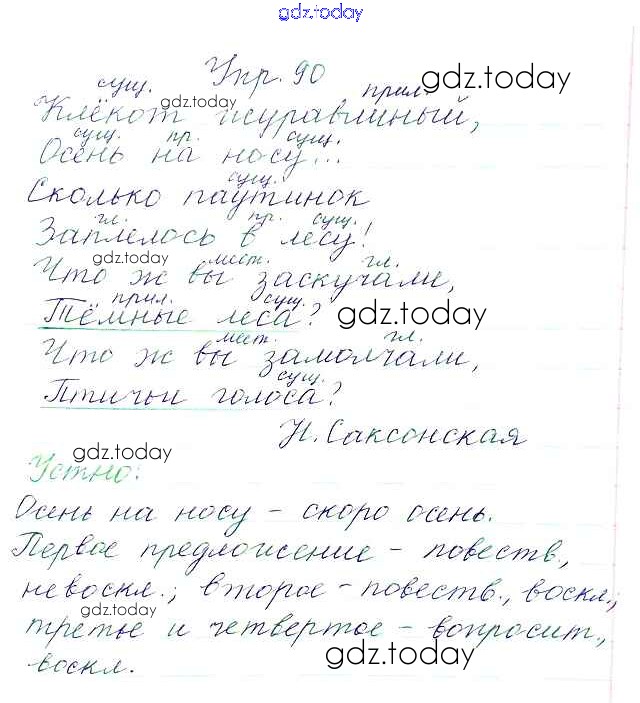 gdz.today
Упр. 90
gdz.today
сущ. прил.
gdz.today
Клёкот журавлиный,
сущ. пр. сущ.
Осень на носу...
сущ.
Сколько паутинок
гл. пр. сущ.
Заплелось в лесу!
gdz.today
мест. гл.
Что ж вы заскучали,
прил. сущ.
Тёмные леса?
gdz.today
мест. гл.
Что ж вы замолчали,
сущ.
Птичьи голоса?
Н. Саксонская
gdz.today
Устно:
Осень на носу - скоро осень.
Первое предложение - повеств.,
невоскл.; второе - повеств., воскл.;
gdz.today
третье и четвертое - вопросит.,
воскл.
gdz.today